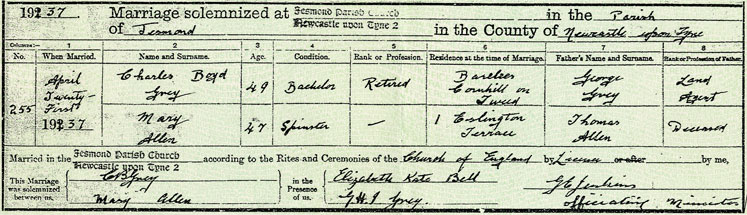 1937 Marriage solemnized at Jesmond Parish Church Newcastle upon Tyne 2 in the Parish
of Jesmond in the County of Newcastle upon Tyne
Columns:— 1 2 3 4 5 6 7 8
No. When Married. Name and Surname. Age. Condition. Rank or Profession. Residence at the time of Marriage. Father's Name and Surname. Rank or Profession of Father.
255 April Twenty-First 1937
Charles Boyd Grey 49 Bachelor Retired Barelees Cornhill on Tweed George Grey Land Agent
Mary Allen 47 Spinster — 1 Eslington Terrace Thomas Allen Deceased
Married in the Jesmond Parish Church Newcastle upon Tyne 2 according to the Rites and Ceremonies of the Church of England by Licence or after by me,
This Marriage was solemnized between us, C B Grey Mary Allen
in the Presence of us, Elizabeth Kate Bell G.H.I. Grey.
officiating Minister